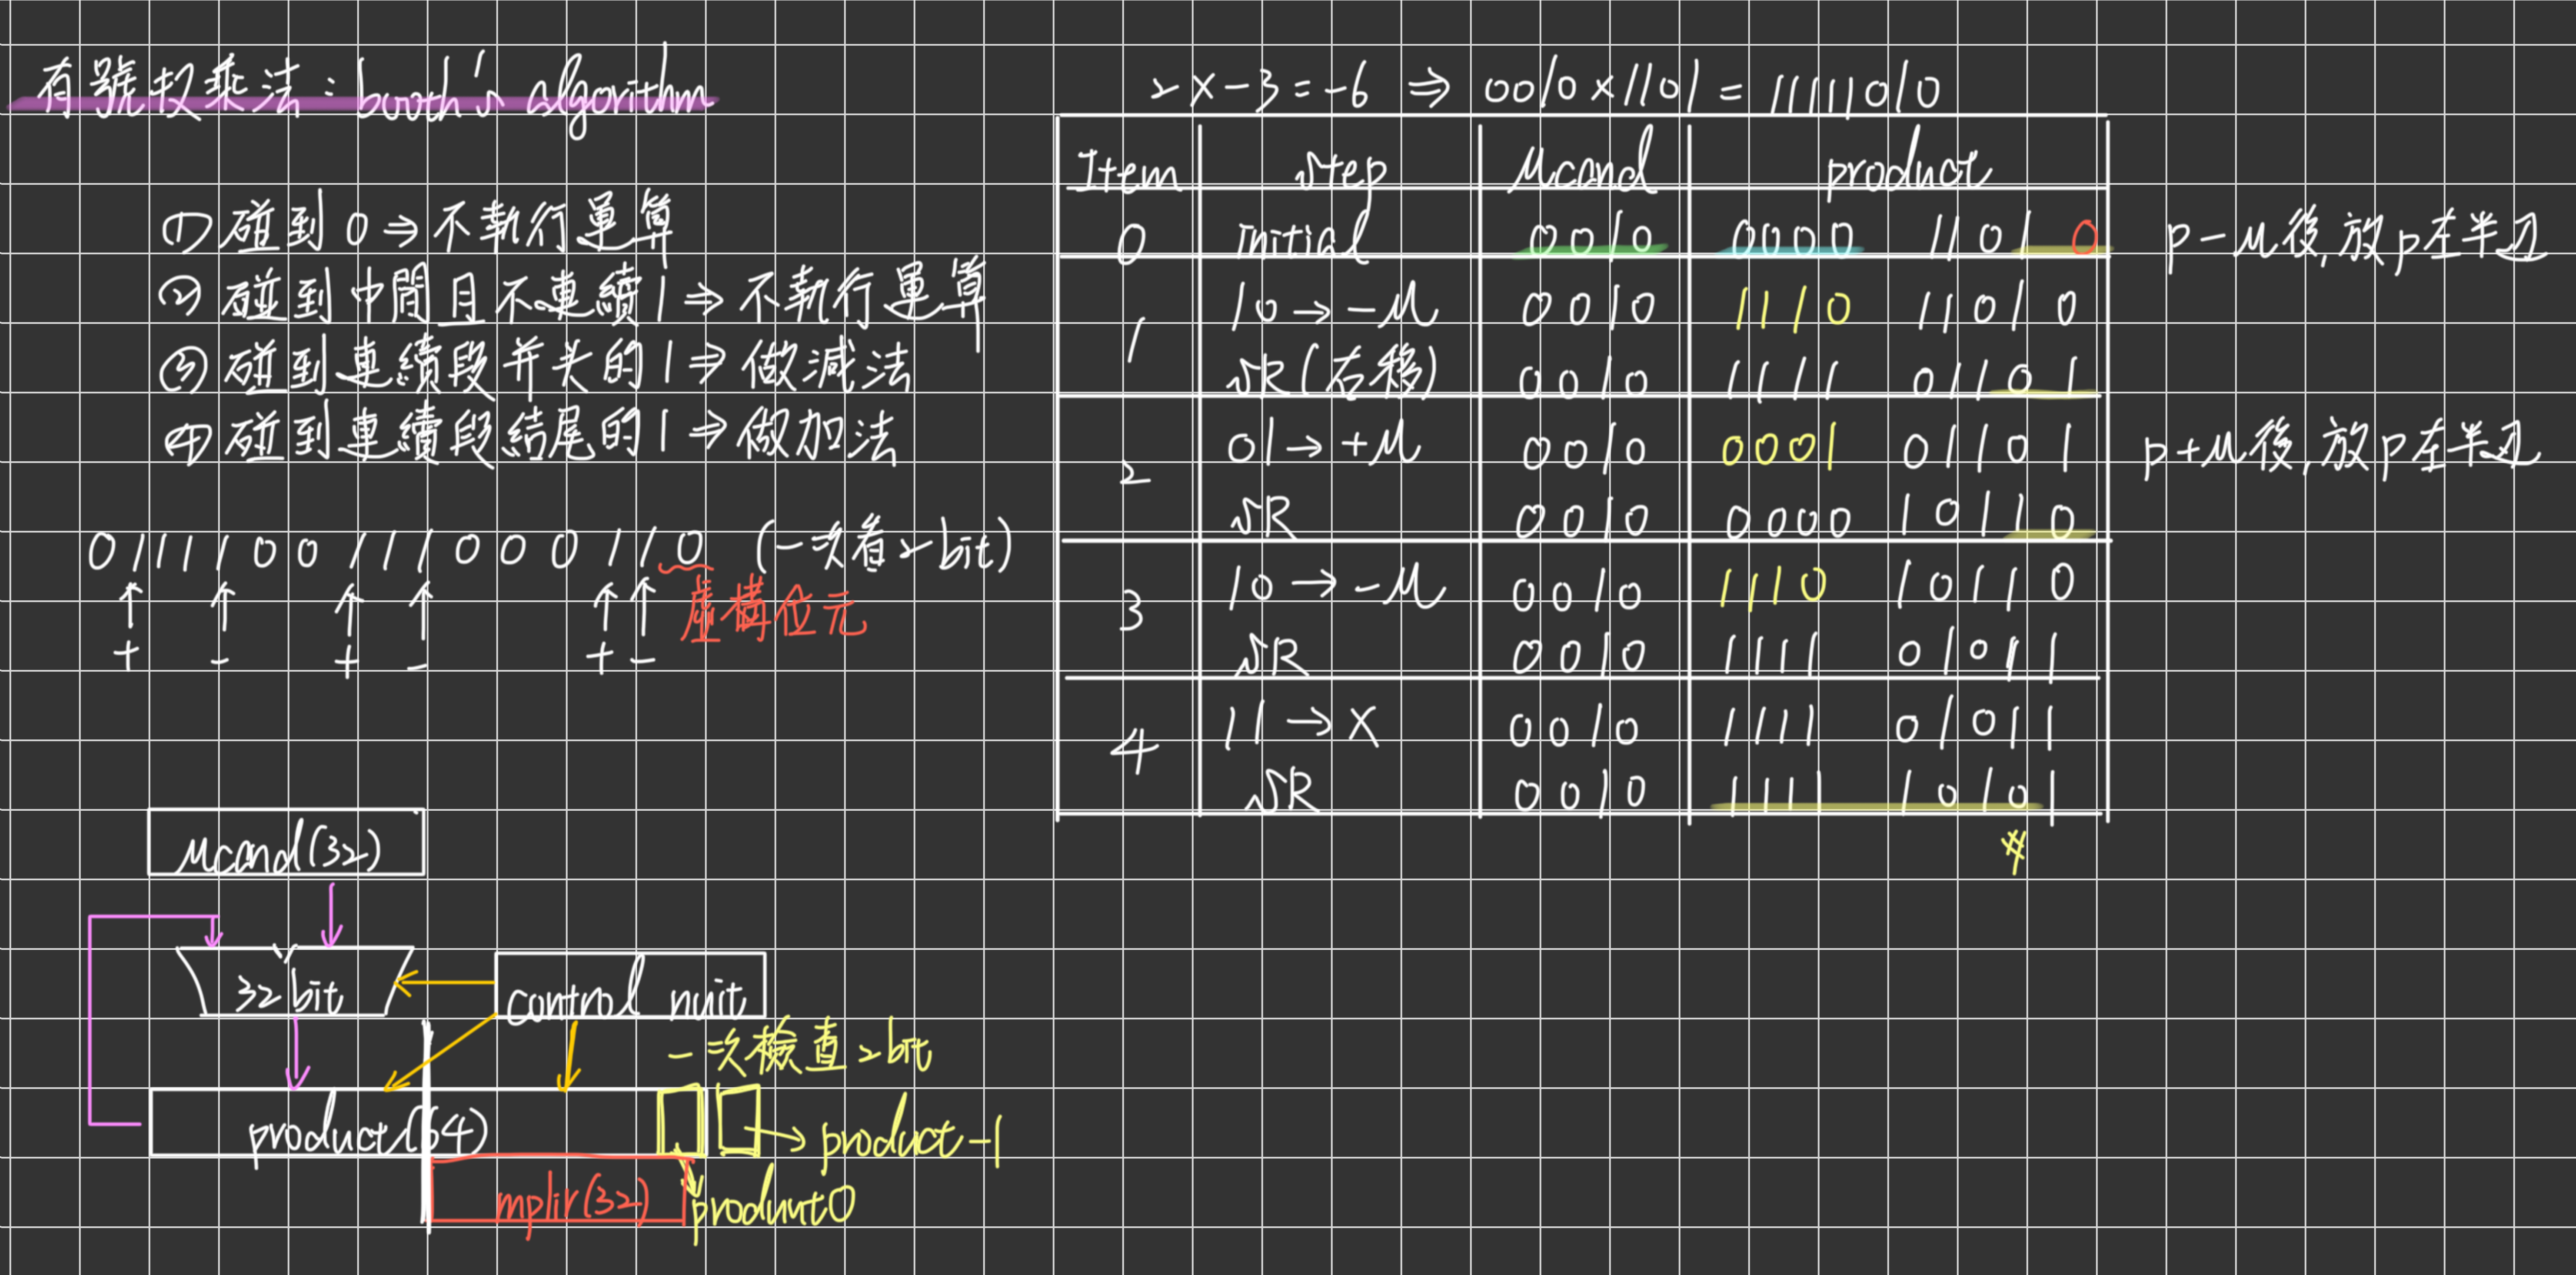 有號数乘法：booth's algorithm
① 碰到 0 ⇒ 不執行運算
② 碰到中間且不連續 1 ⇒ 不執行運算
③ 碰到連續段开头的 1 ⇒ 做減法
④ 碰到連續段結尾的 1 ⇒ 做加法
0 1 1 1 1 0 0 1 1 1 0 0 0 1 1 0 (一次看2bit)
↑ ↑ ↑ ↑ ↑ ↑ 虛構位元
+ - + - + -
Mcand(32)
32bit
control nuit
一次檢查2bit
product(64)
→ product-1
mplir(32)
product0
2 x -3 = -6 ⇒ 0010 x 1101 = 11111010
Item step Mcand product
0 initial 0010 0000 1101 0 p-M後,放p左半边
1 10 → -M 0010 1110 1101 0
SR(右移) 0010 1111 0110 1
2 01 → +M 0010 0001 0110 1 p+M後,放p左半边
SR 0010 0000 1011 0
3 10 → -M 0010 1110 1011 0
SR 0010 1111 0101 1
4 11 → X 0010 1111 0101 1
SR 0010 1111 1010 1
#